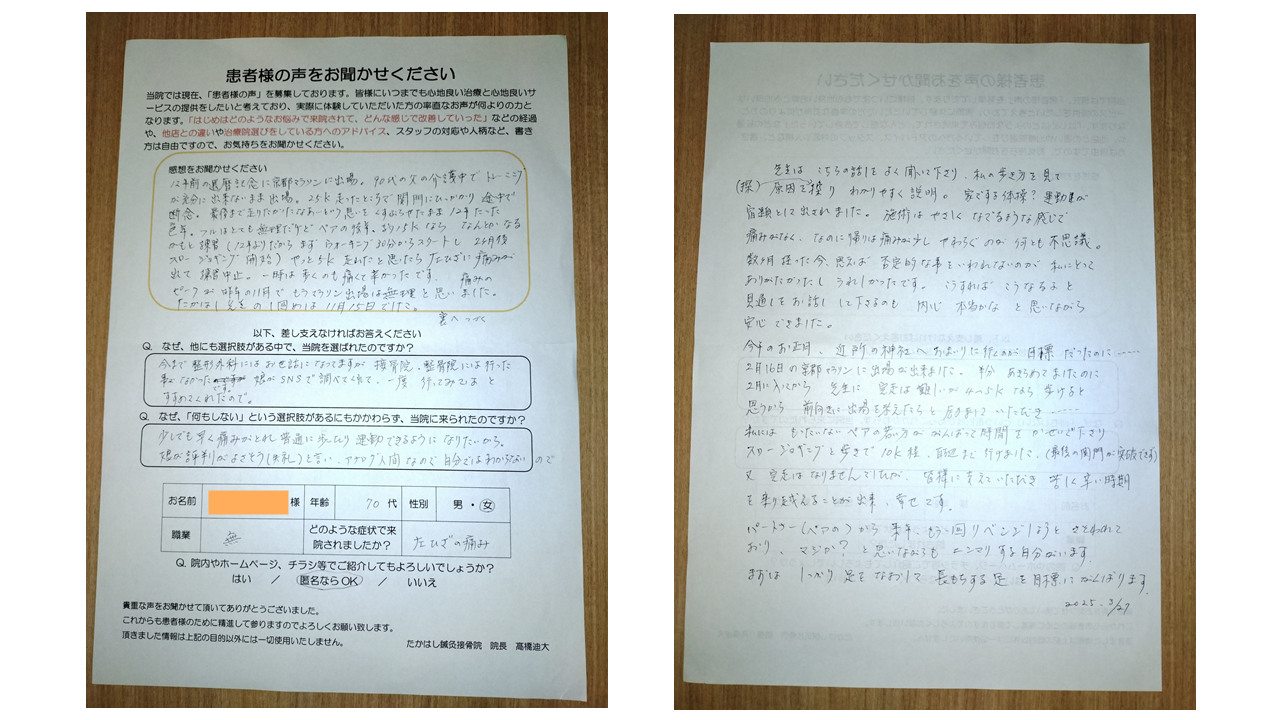 患者様の声をお聞かせください
当院では現在、「患者様の声」を募集しております。皆様にいつまでも心地良い治療と心地良いサ
ービスの提供をしたいと考えており、実際に体験していただいた方の率直なお声が何よりの力と
なります。「はじめはどのようなお悩みで来院されて、どんな感じで改善していった」などの経過
や、他店との違いや治療院選びをしている方へのアドバイス、スタッフの対応や人柄など、書き
方は自由ですので、お気持ちをお聞かせください。
感想をお聞かせください
12年前の還暦記念に京都マラソンに出場。90代の父の介護中で トレーニング
が充分に出来ないまま出場。25K 走ったところで関門にひっかかり 途中で
断念。最後まで走りたかったなあという思いをくすぶらせたまま 12年たった
色年。フルはとても無理だけど ペアの後半、より15Kなら なんとかなる
かもと練習(12年ぶりだからまず ウォーキング30分からスタートし 2ヶ月後
スロージョギング開始) やっと5K 走れたと思いたら 左ひざに痛みが
出て 練習中止。一時は歩くのも痛くて辛かったです。 痛みの
ピークが昨年の11月で もうマラソン出場は無理と思いました。
たかはし先生の1回めは11月15日でした。
裏へつづく
以下、差し支えなければお答えください
Q. なぜ、他にも選択肢がある中で、当院を選ばれたのですか?
今まで整形外科にはお世話になってますが 接骨院、整骨院には行った
事がなかったです。娘がSNSで調べてくれて、一度 行ってみてはと
すすめてくれたので。
Q. なぜ、「何もしない」という選択肢があるにもかかわらず、当院に来られたのですか?
少しでも早く痛みがとれ 普通に歩いたり 運動できるようになりたいから。
娘が評判がよさそう(失礼)と言い、アナログ人間なので自分ではわからないので
お名前 様 年齢 70 代 性別 男 ・ 女
職業 無 どのような症状で来院されましたか? 左ひざの痛み
Q. 院内やホームページ、チラシ等でご紹介してもよろしいでしょうか?
はい / 匿名ならOK / いいえ
貴重な声をお聞かせて頂いてありがとうございました。
これからも患者様のために精進して参りますのでよろしくお願い致します。
頂きました情報は上記の目的以外には一切使用いたしません。
たかはし鍼灸接骨院 院長 髙橋迪大
先生は こちらの話をよく聞いて下さり、私の歩き方を見て
(探) 原因を探り わかりやすく説明。 家でする体操?運動?が
宿題として出されました。 施術は やさしく なでるような感じで
痛みがなく、なのに帰りは痛みが少し やわらぐのが 何とも不思議。
数ヶ月経った今、思えば 否定的な事をいわれないのが 私にとって
ありがたかったし うれしかったです。 こうすれば こうなるよと
見通しをお話しして下さるのも 内心 本当かな と思いながら
安心できました。
今年のお正月、近所の神社へおまいりに行くのが目標だったのに……
2月16日の京都マラソンに出場が出来ました。 半分 あきらめてましたのに
2月に入ってから 先生に 完走は難しいが 4〜5Kなら歩けると
思うから 前向きに出場を考えたらと 励まして いただき……
私には もったいない ペアの若い方が がんばって時間をかせいで下さり
スロージョギングと歩きで 10K程 前進まで行けまして、(最後の関門が突破です)
又 完走はなりませんでしたが、皆様に支えていただき 苦しく辛い時期
を乗り越えることが出来、幸せです。
パートナー(ペアの)から来年、もう一回リベンジしようと さそわれて
おり、マジか? と思いながらも ニンマリする自分がいます。
まずは しっかり足をなおして 長もちする足を目標にがんばります。
2025. 3/27